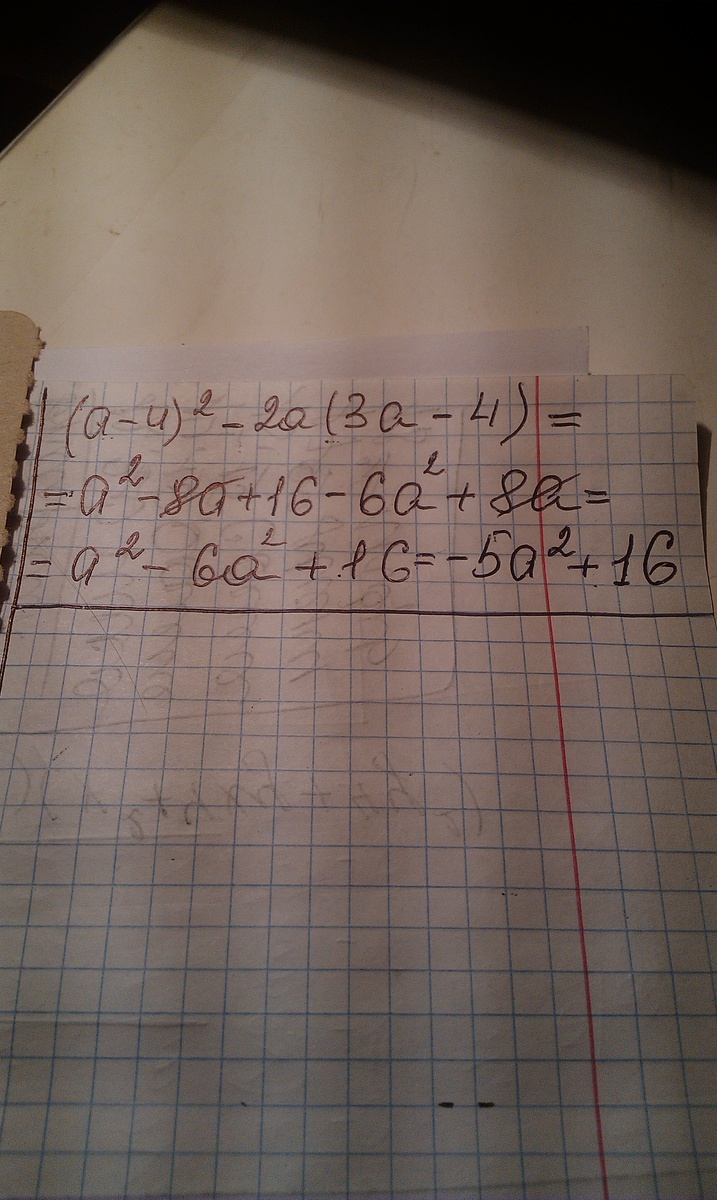 (a-4)² - 2a(3a - 4) =
= a² - 8a + 16 - 6a² + 8a =
= a² - 6a² + 16 = -5a² + 16